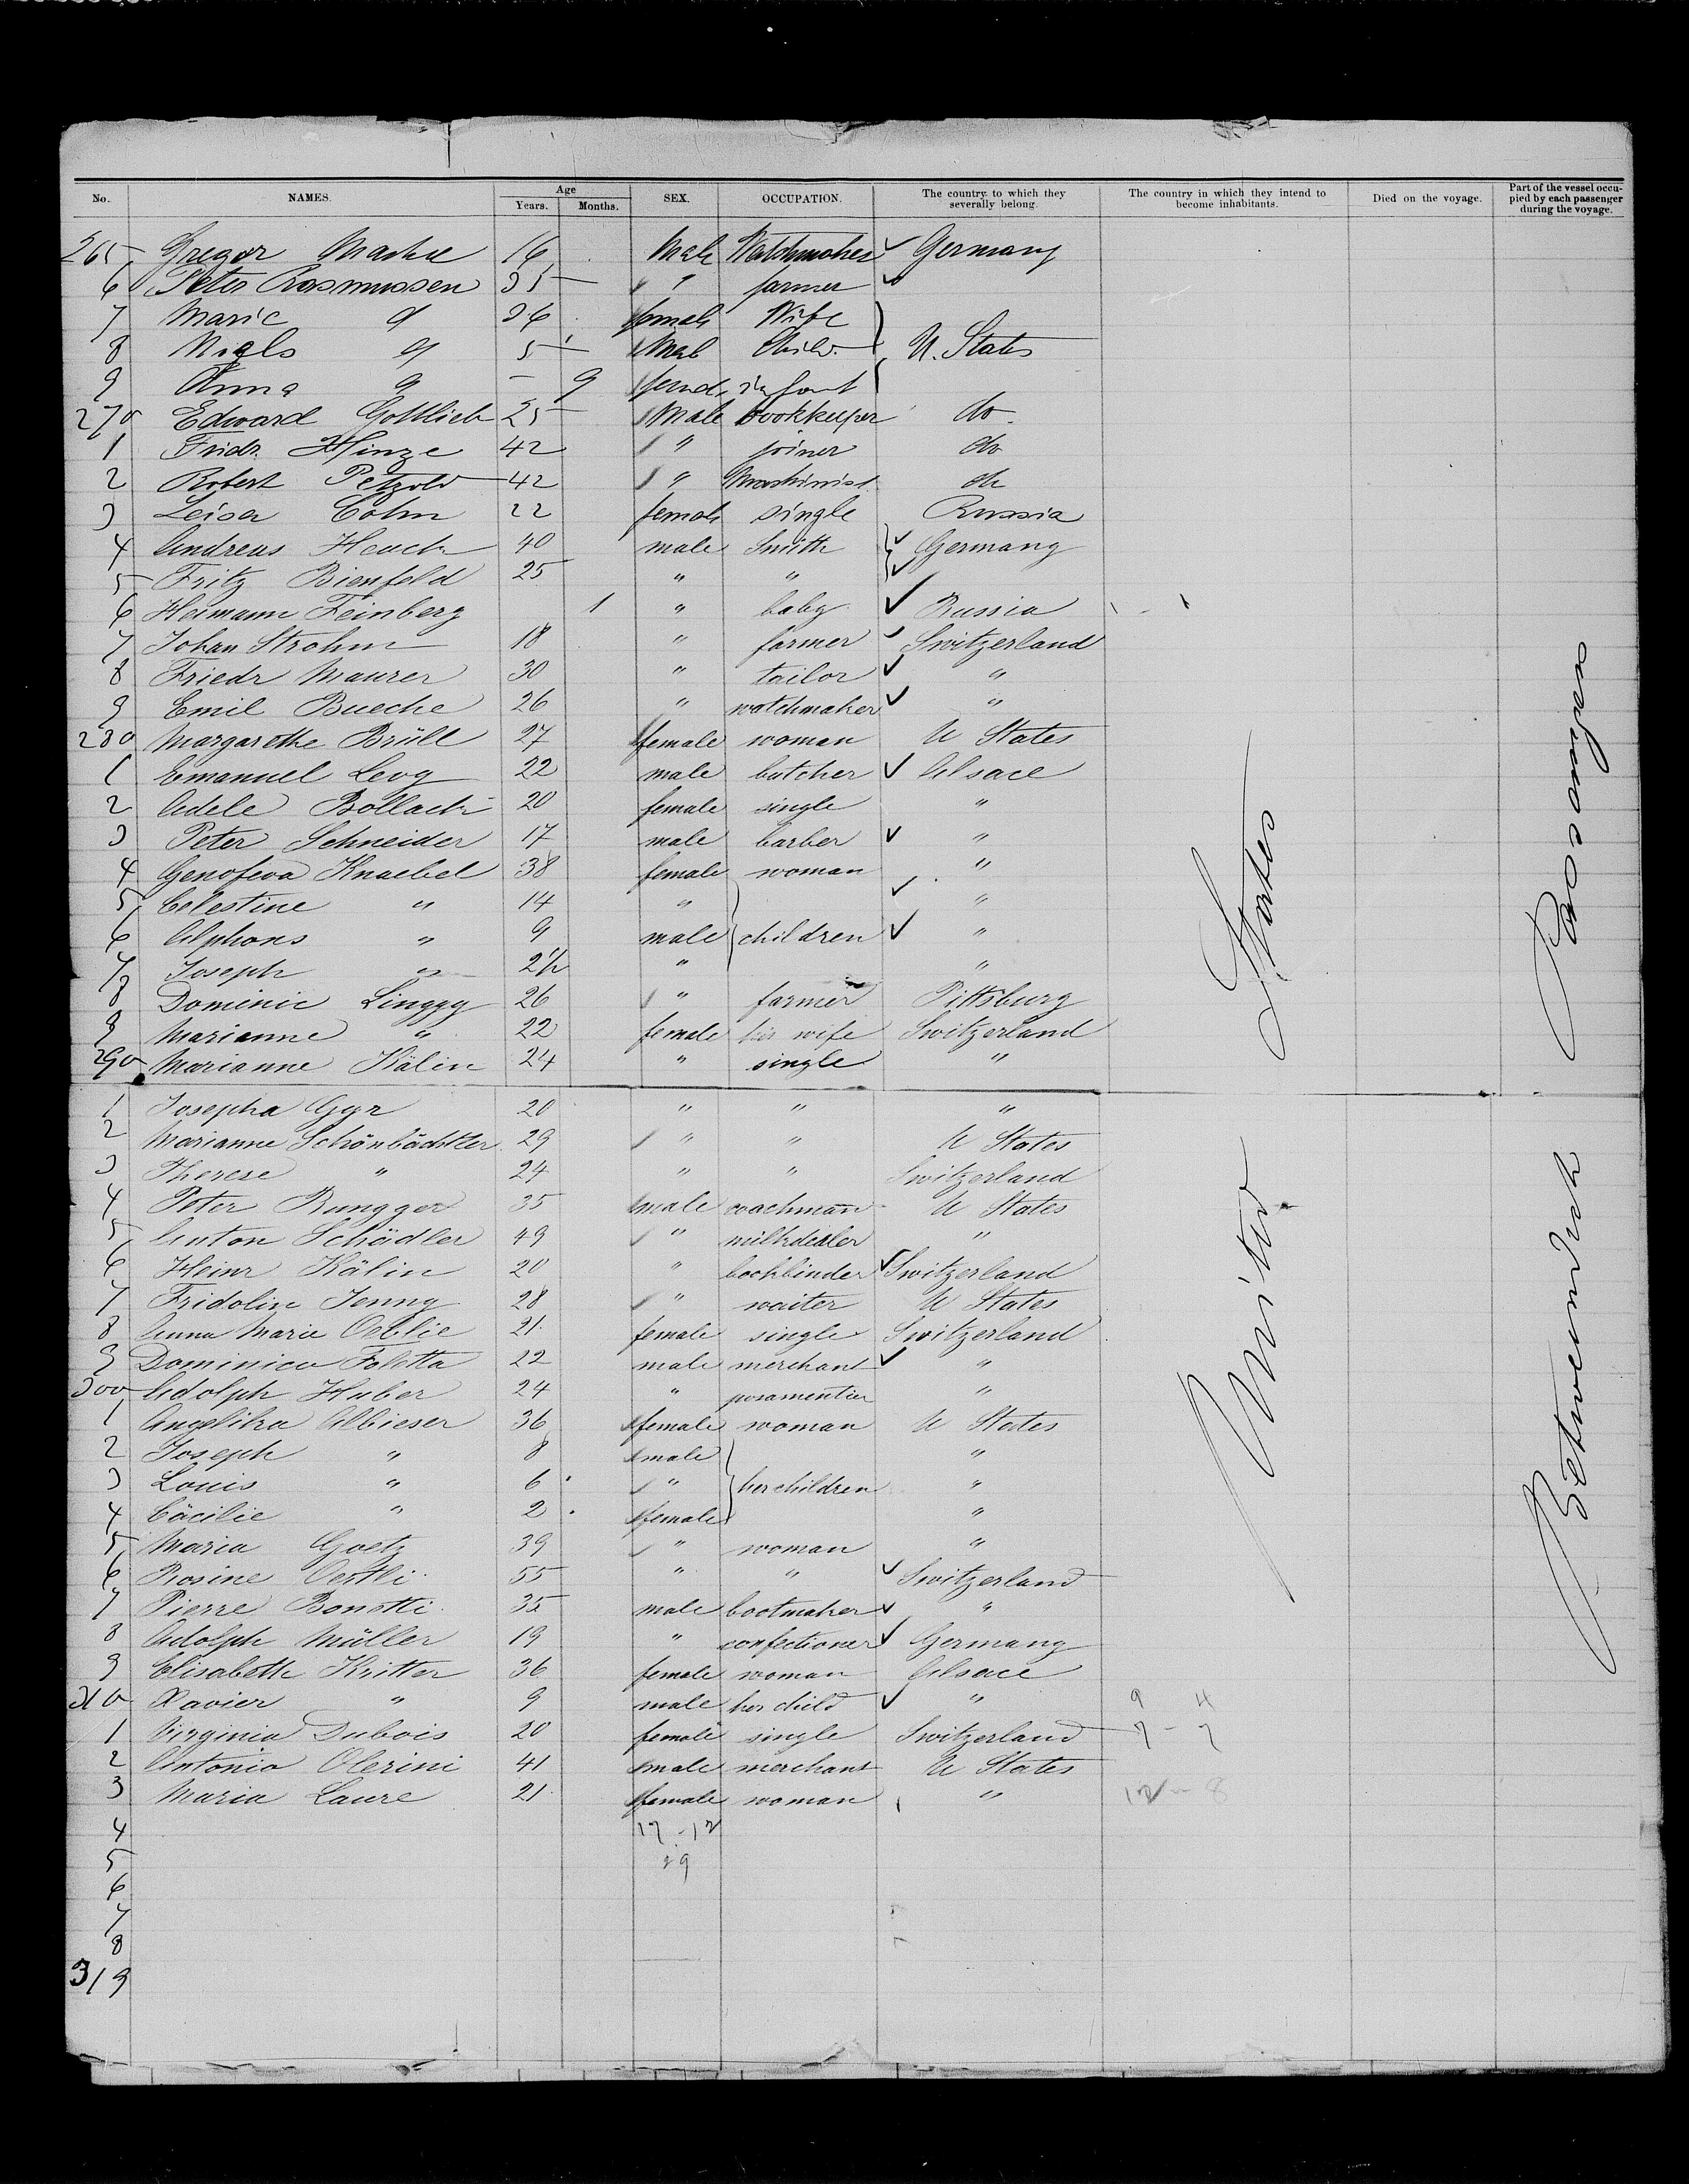 No. NAMES. Age Years. Months. SEX. OCCUPATION. The country to which they severally belong. The country in which they intend to become inhabitants. Died on the voyage. Part of the vessel occupied by each passenger during the voyage.
265 Gregor 16 Male Watchmaker Germany
6 Peter Rasmussen 35 " farmer
7 Marie " 36 female Wife
8 Niels " 5 Male Child U. States
9 Anna " – 9 female infant
270 Edward Gottlieb 25 Male bookkeeper do
1 Friedr. Hinze 42 " joiner do
2 Robert Petzold 42 " Maschinist do
3 Leisa Cohn 22 female single Russia
4 Andreas Hauck 40 male Smith Germany
5 Fritz Bienfeld 25 " "
6 Heimann Feinberg 1 " baby Russia
7 Johan Strohm 18 " farmer Switzerland
8 Friedr Maurer 30 " tailor "
9 Emil Bueche 26 " watchmaker "
280 Margarethe Brüll 27 female woman U States
1 Emanuel Levy 22 male butcher Alsace
2 Adele Bollack 20 female single "
3 Peter Schneider 17 male barber "
4 Genofeva Knaebel 38 female woman "
5 Celestine " 14 " "
6 Alphons " 9 male children "
7 Joseph " 2½ " "
8 Dominic Linggy 26 " farmer Pittsburg
9 Marianne " 22 female his wife Switzerland
290 Marianne Kälin 24 " single "
1 Josepha Gyr 20 " " "
2 Marianne Schönbächtler 29 " " U States
3 Therese " 24 " " Switzerland
4 Peter Rungger 35 male coachman U States
5 Anton Schädler 49 " milkdealer "
6 Heinr Kälin 20 " bookbinder Switzerland
7 Fridolin Jenny 28 " waiter U States
8 Anna Marie 21 female single Switzerland
9 Dominica 22 male merchant "
300 Adolph Huber 24 " posamentier "
1 Angelika Albieser 36 female woman U States
2 Joseph " 8 male "
3 Louis " 6 " her children "
4 Cäcilie " 2 female "
5 Maria Goetz 39 " woman "
6 Rosine Oertli 55 " " Switzerland
7 Pierre Bonetti 35 male bootmaker "
8 Adolph Müller 19 " confectioner Germany
9 Elisabeth Kritter 36 female woman Alsace
310 Xavier " 9 male her child " 9 4
1 Virginia Dubois 20 female single Switzerland 7 - 7
2 Antonio Olerini 41 male merchant U States
3 Maria Laure 21 female woman " 12 - 8
4 17 - 12
5 29
6
7
8
319
United States
Betweendeck Passengers